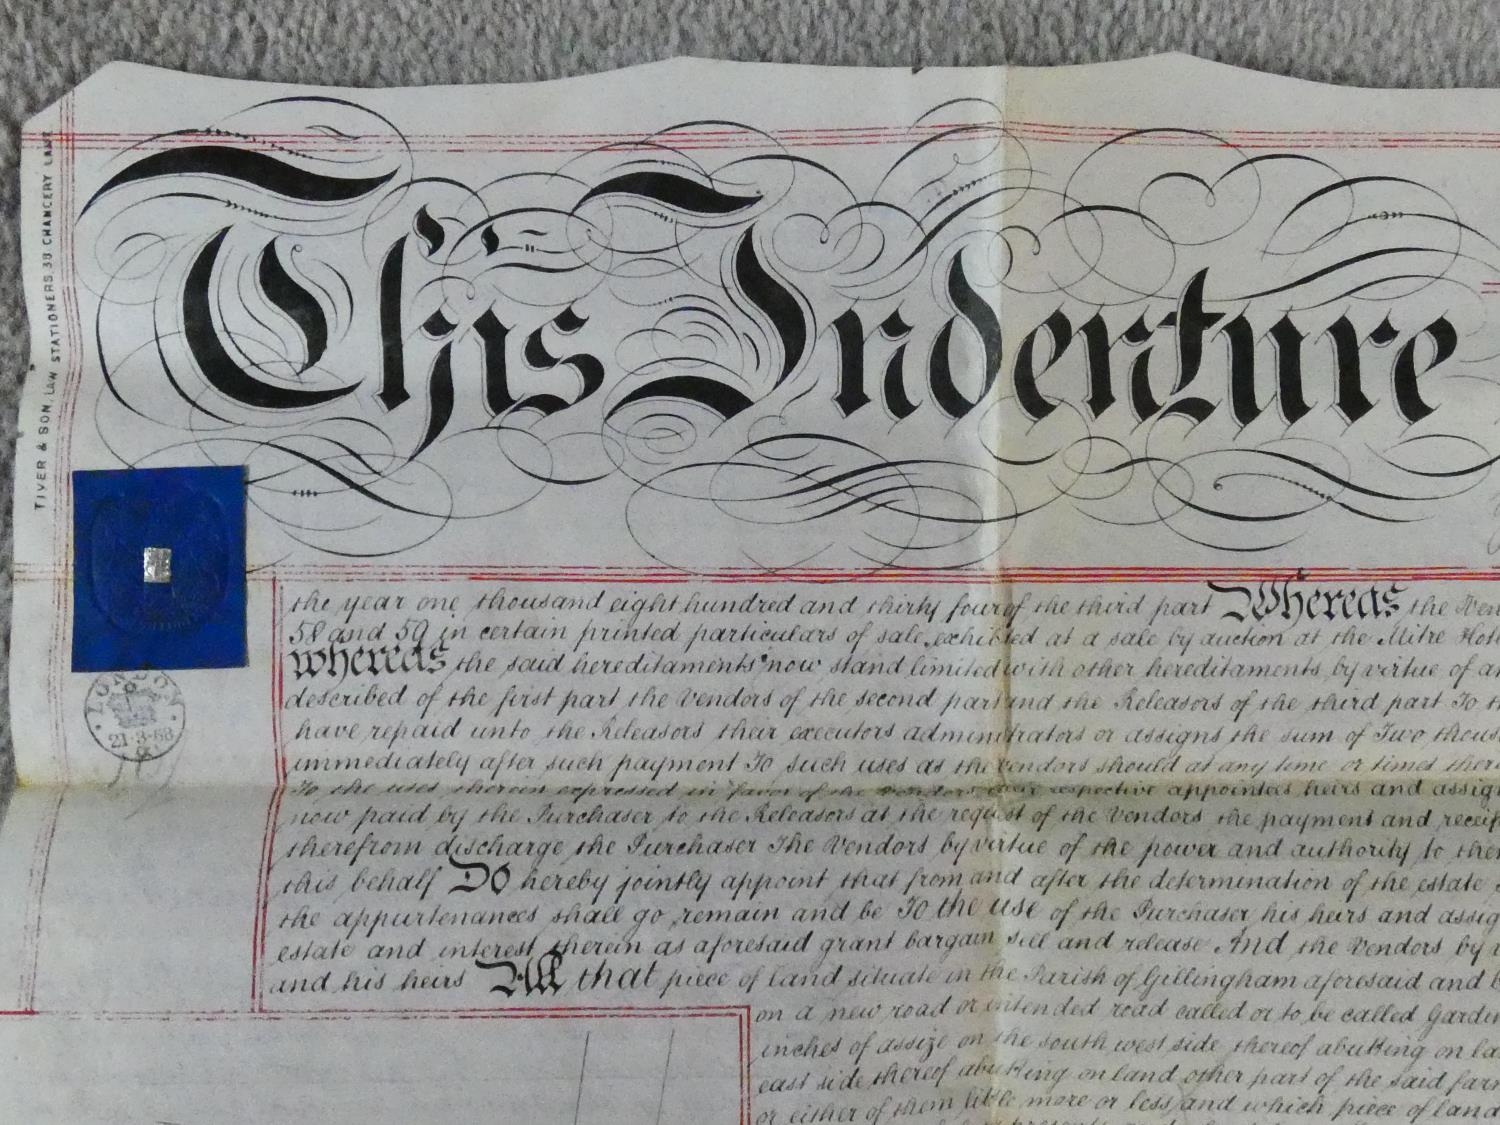 This Indenture
TIVER & SON, LAW STATIONERS 38 CHANCERY LANE
LONDON
21·3·68
the year one thousand eight hundred and thirty four of the third part Whereas the Ven
58 and 59 in certain printed particulars of sale exhibited at a sale by auction at the Mitre Hote
whereas the said hereditaments now stand limited with other hereditaments by virtue of an
described of the first part the Vendors of the second part and the Releasors of the third part To th
have repaid unto the Releasors their executors administrators or assigns the sum of Two thous
immediately after such payment To such uses as the vendors should at any time or times there
To the uses therein expressed in favor of the vendors respective appointees heirs and assig
now paid by the Purchaser to the Releasors at the request of the Vendors the payment and receip
therefrom discharge the Purchaser The Vendors by virtue of the power and authority to them
this behalf Do hereby jointly appoint that from and after the determination of the estate
the appurtenances shall go remain and be To the use of the Purchaser his heirs and assig
estate and interest therein as aforesaid grant bargain sell and release And the Vendors by
and his heirs All that piece of land situate in the Parish of Gillingham aforesaid and b
on a new road or intended road called or to be called Gardin
inches of assize on the south west side thereof abutting on la
east side thereof abutting on land other part of the said farm
or either of them little more or less and which piece of land